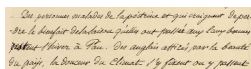 Des personnes malades de la poitrine et qui craignent de per-
dre le bienfait de la laine qu'elles ont passé aux Eaux bonnes
l'hiver à Pau. Des anglais attirés par la beauté
du pays, la douceur du Climat s'y fixent ou y passent